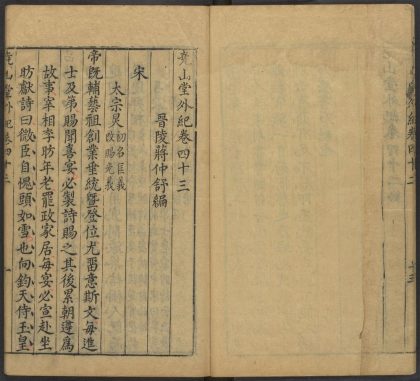 堯山堂外紀卷四十三
晉陵蔣仲舒編
宋
太宗炅 初名匡義
改賜光義
帝既輔藝祖創業垂統暨登位尤畱意斯文每進
士及第賜聞喜宴必製詩賜之其後累朝遵爲
故事宰相李昉年老罷政家居每宴必宣赴坐
昉獻詩曰微臣自愧頭如雪也向鈞天侍玉皇
堯山堂外紀卷四十三